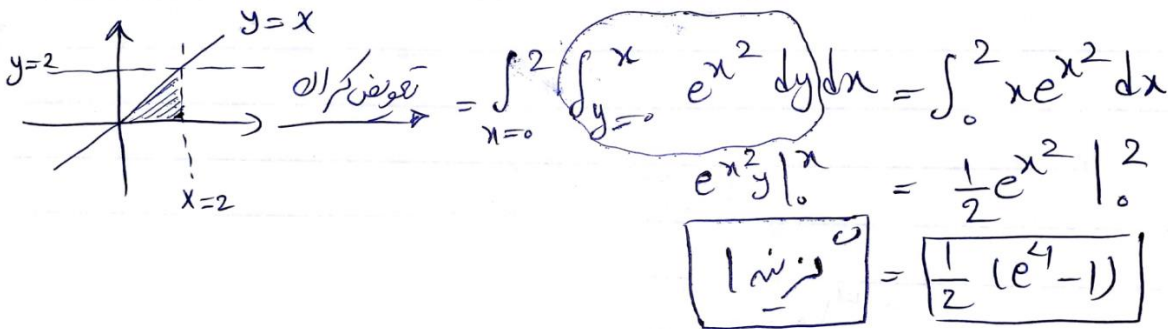 y=x
y=2
x=2
تعویض کران
= ∫_{x=0}^{2} ∫_{y=0}^{x} e^{x^2} dy dx = ∫_0^2 x e^{x^2} dx
e^{x^2} y |_0^x = 1/2 e^{x^2} |_0^2
گزینه 1 = 1/2 (e^4 - 1)